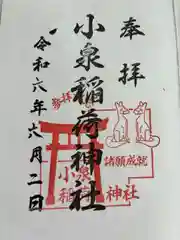 奉拝
小泉稲荷神社
令和六年六月二日
諸願成就
小泉
稲荷神社